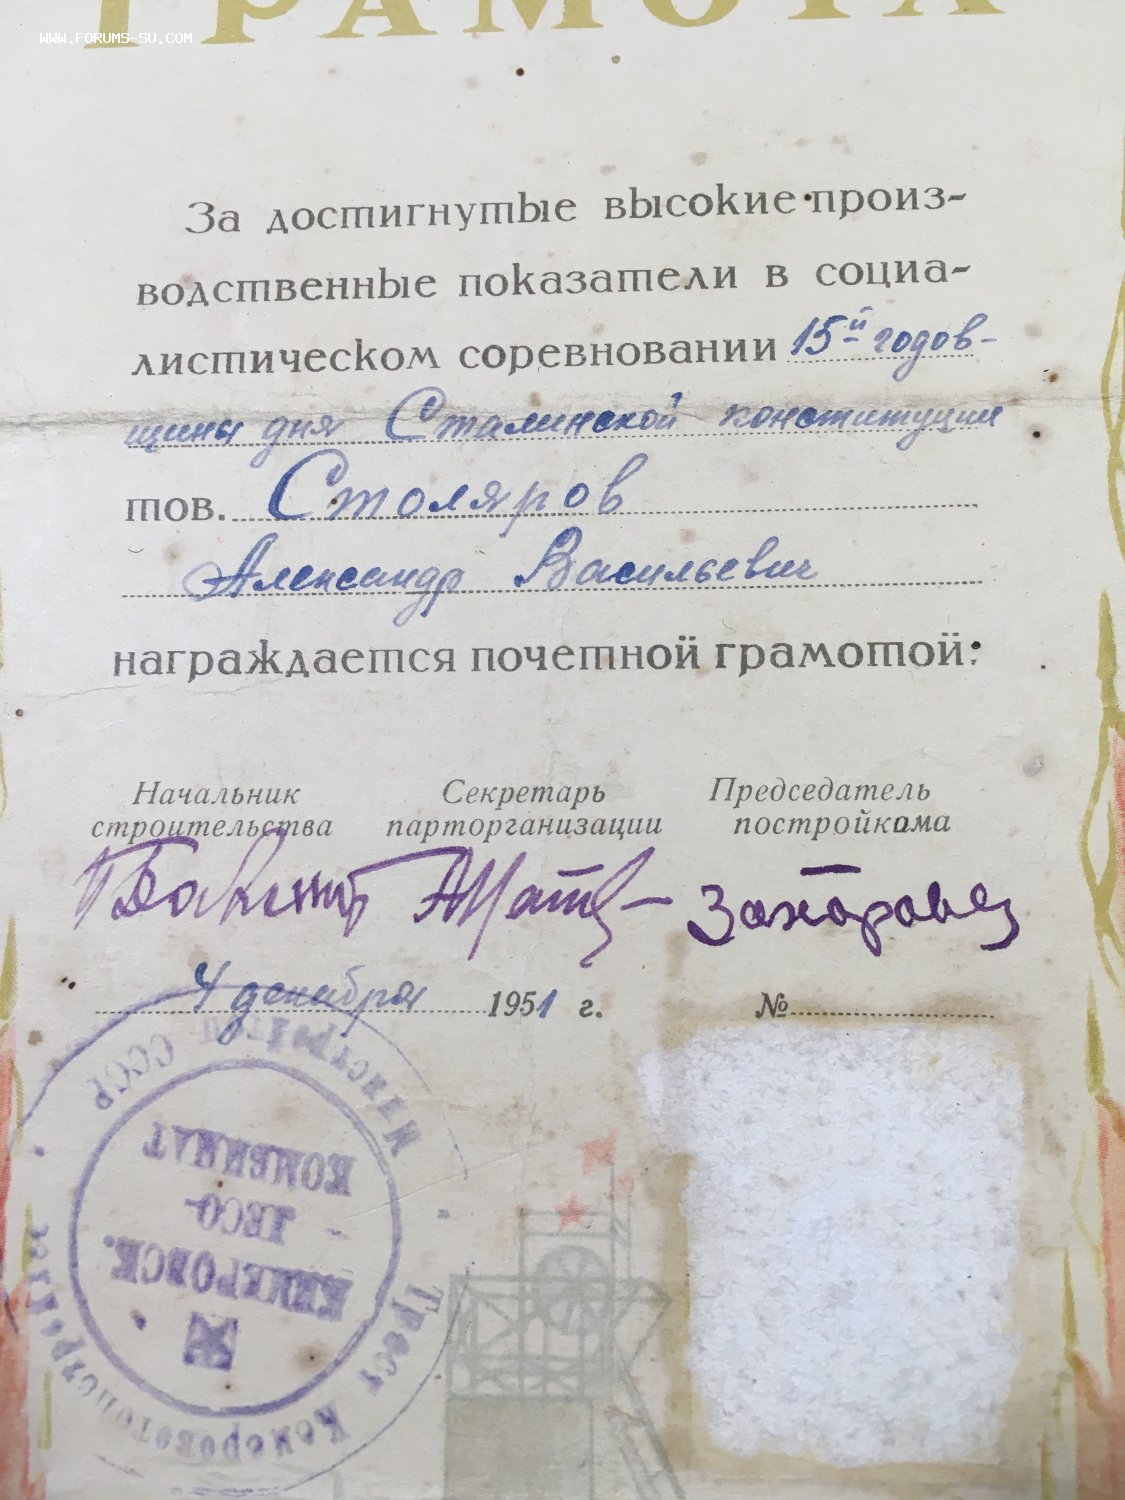 ГРАМОТА
WWW.FORUMS-SU.COM
За достигнутые высокие произ-
водственные показатели в социа-
листическом соревновании 15-й годов-
щины дня Сталинской конституции
тов. Столяров
Александр Васильевич
награждается почетной грамотой.
Начальник Секретарь Председатель
строительства парторганизации постройкома
4 декабря 1951 г. №
Минстройтоп СССР
Трест Кемеровотопстрой
КЕМЕРОВСК.
ЛЕСО-
КОМБИНАТ